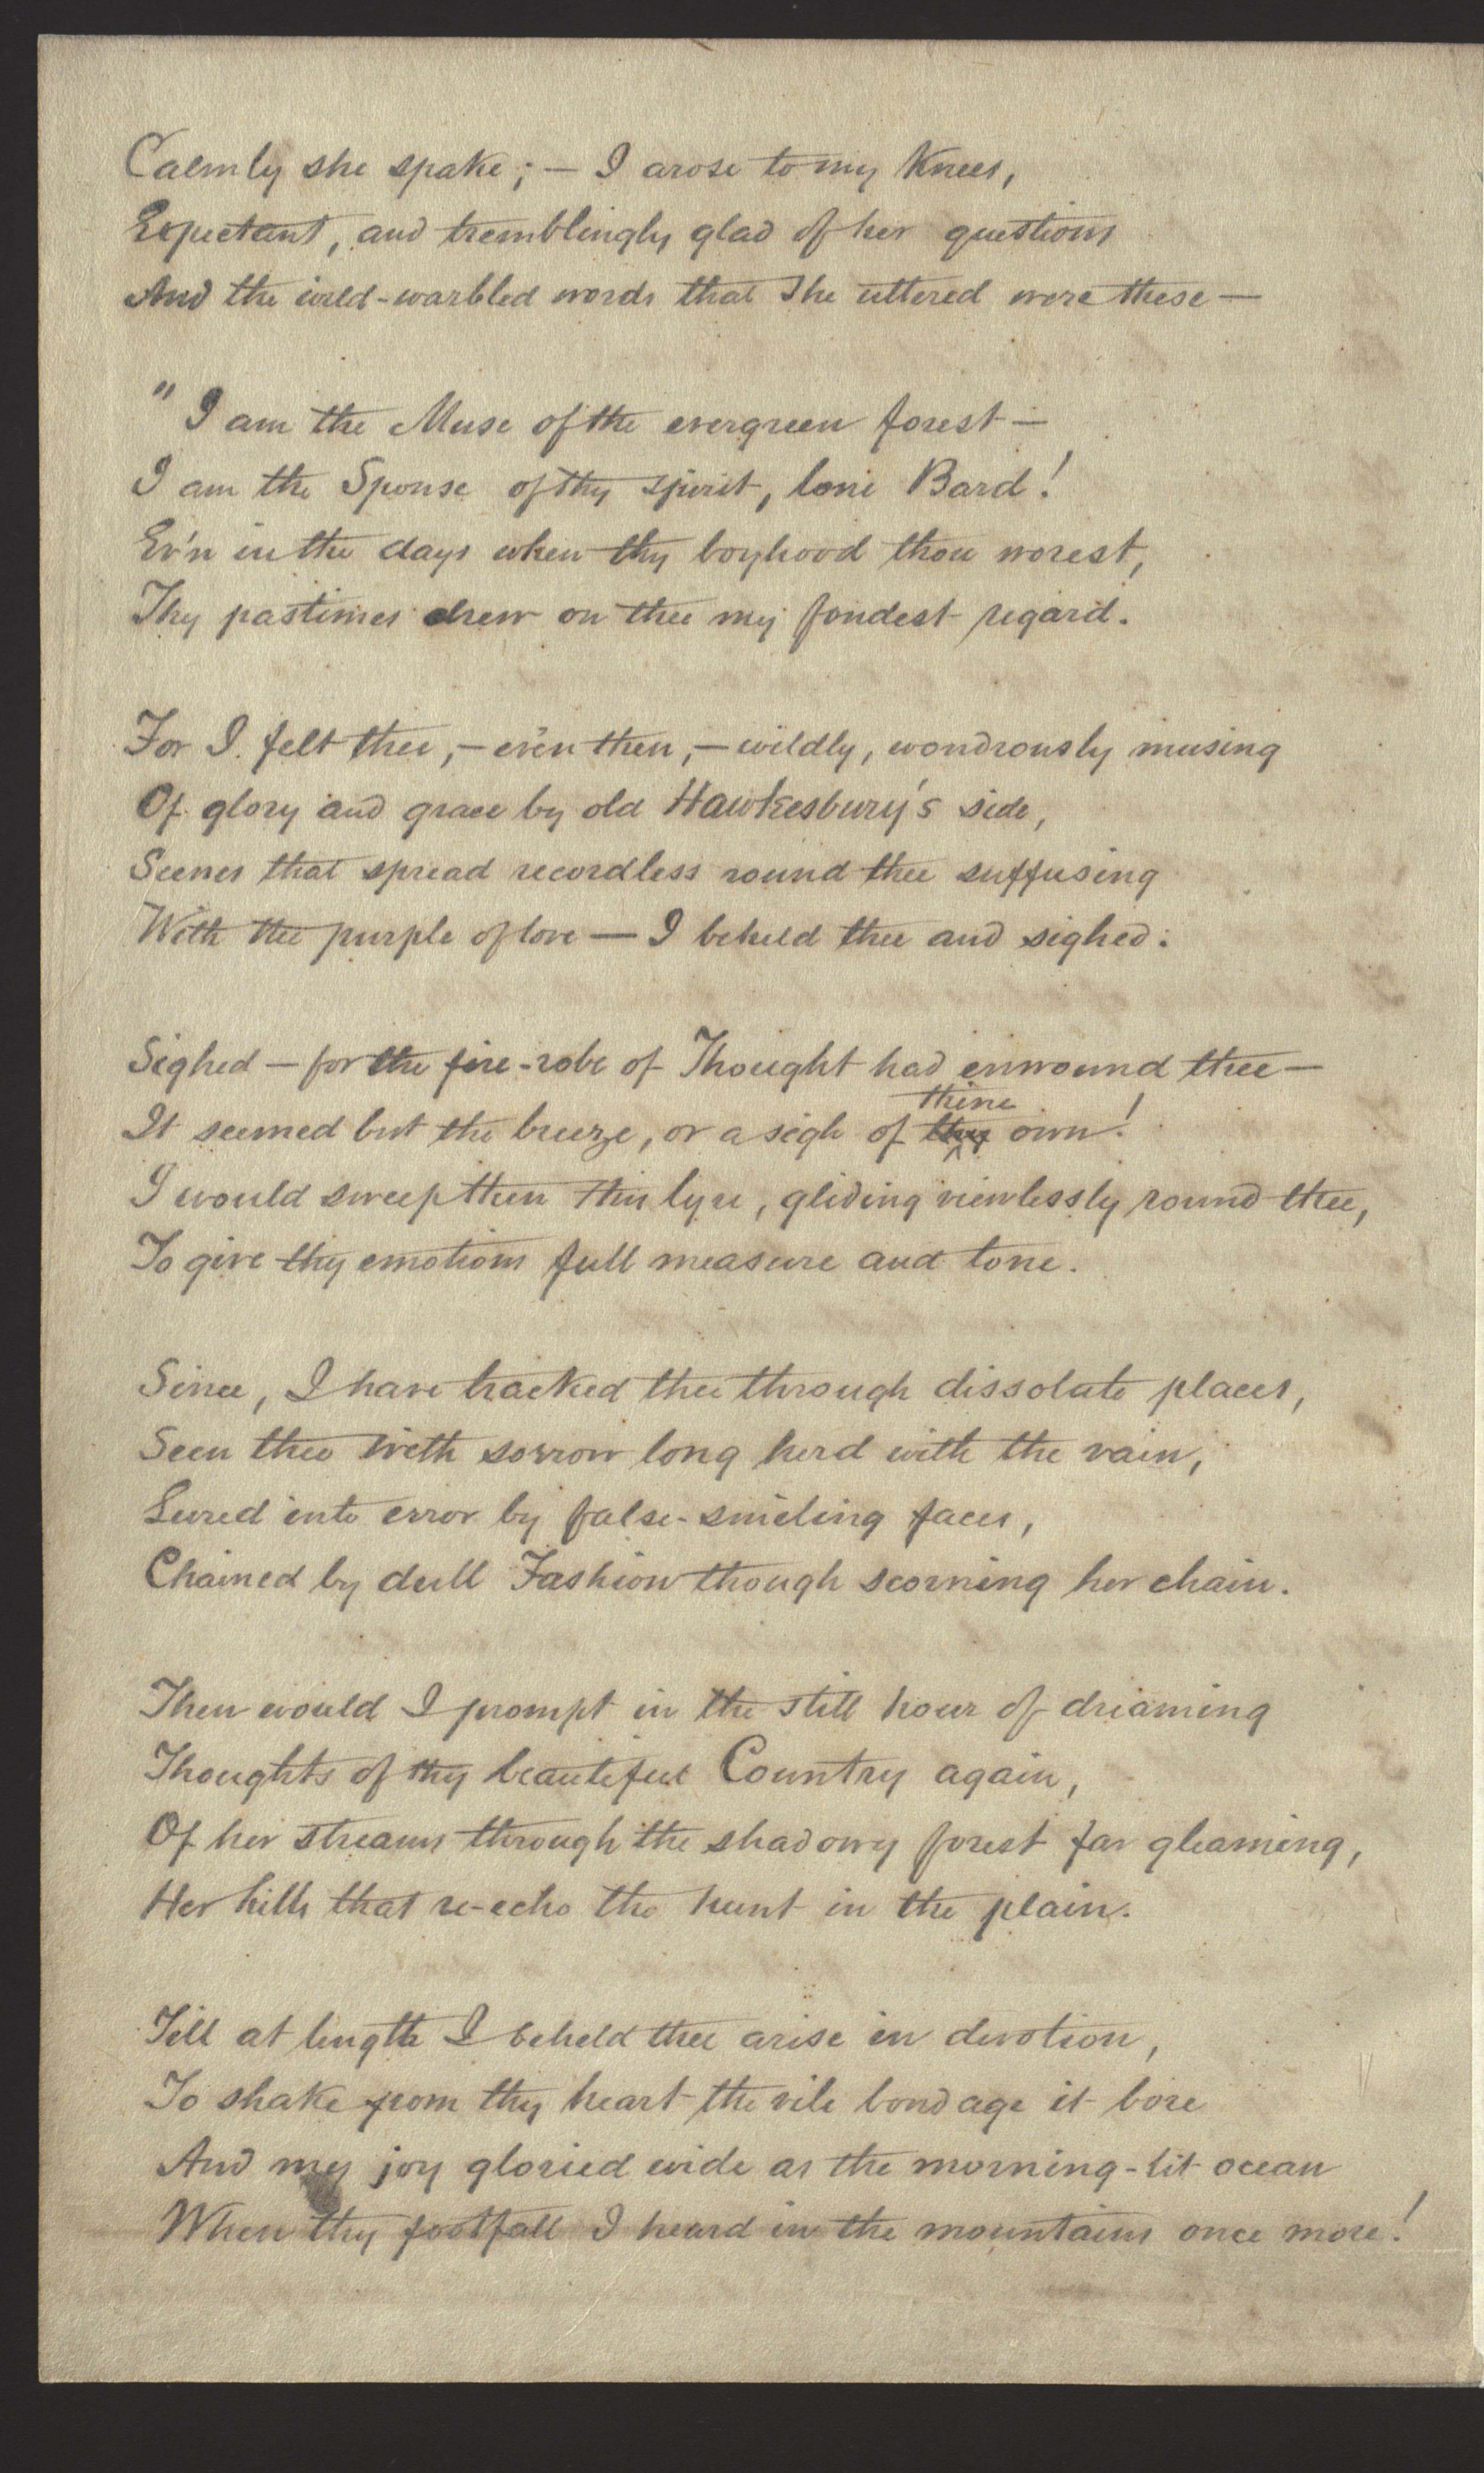 Calmly she spake; — I arose to my Knees,
Expectant, and tremblingly glad of her questions
And the wild-warbled words that She uttered were these —
" I am the Muse of the evergreen forest —
I am the Spouse of thy spirit, lone Bard!
Ev'n in the days when thy boyhood thou worest,
Thy pastimes drew on thee my fondest regard.
For I felt thee, — ev'n then, — wildly, wondrously musing
Of glory and grace by old Hawkesbury's side,
Scenes that spread recordless round thee suffusing
With the purple of love — I beheld thee and sighed.
Sighed — for the fire-robe of Thought had enwound thee —
thine
It seemed but the breeze, or a sigh of thy own!
I would sweep then this lyre, gliding viewlessly round thee,
To give thy emotions full measure and tone.
Since, I have tracked thee through dissolate places,
Seen thee with sorrow long herd with the vain,
Lured into error by false-smiling faces,
Chained by dull Fashion though scorning her chain.
Then would I prompt in the still hour of dreaming
Thoughts of thy beautiful Country again,
Of her streams through the shadowy forest far gleaming,
Her hills that re-echo the hunt in the plain.
Till at length I beheld thee arise in devotion,
To shake from thy heart the vile bondage it bore
And my joy gloried wide as the morning-lit ocean
When thy footfall I heard in the mountains once more!